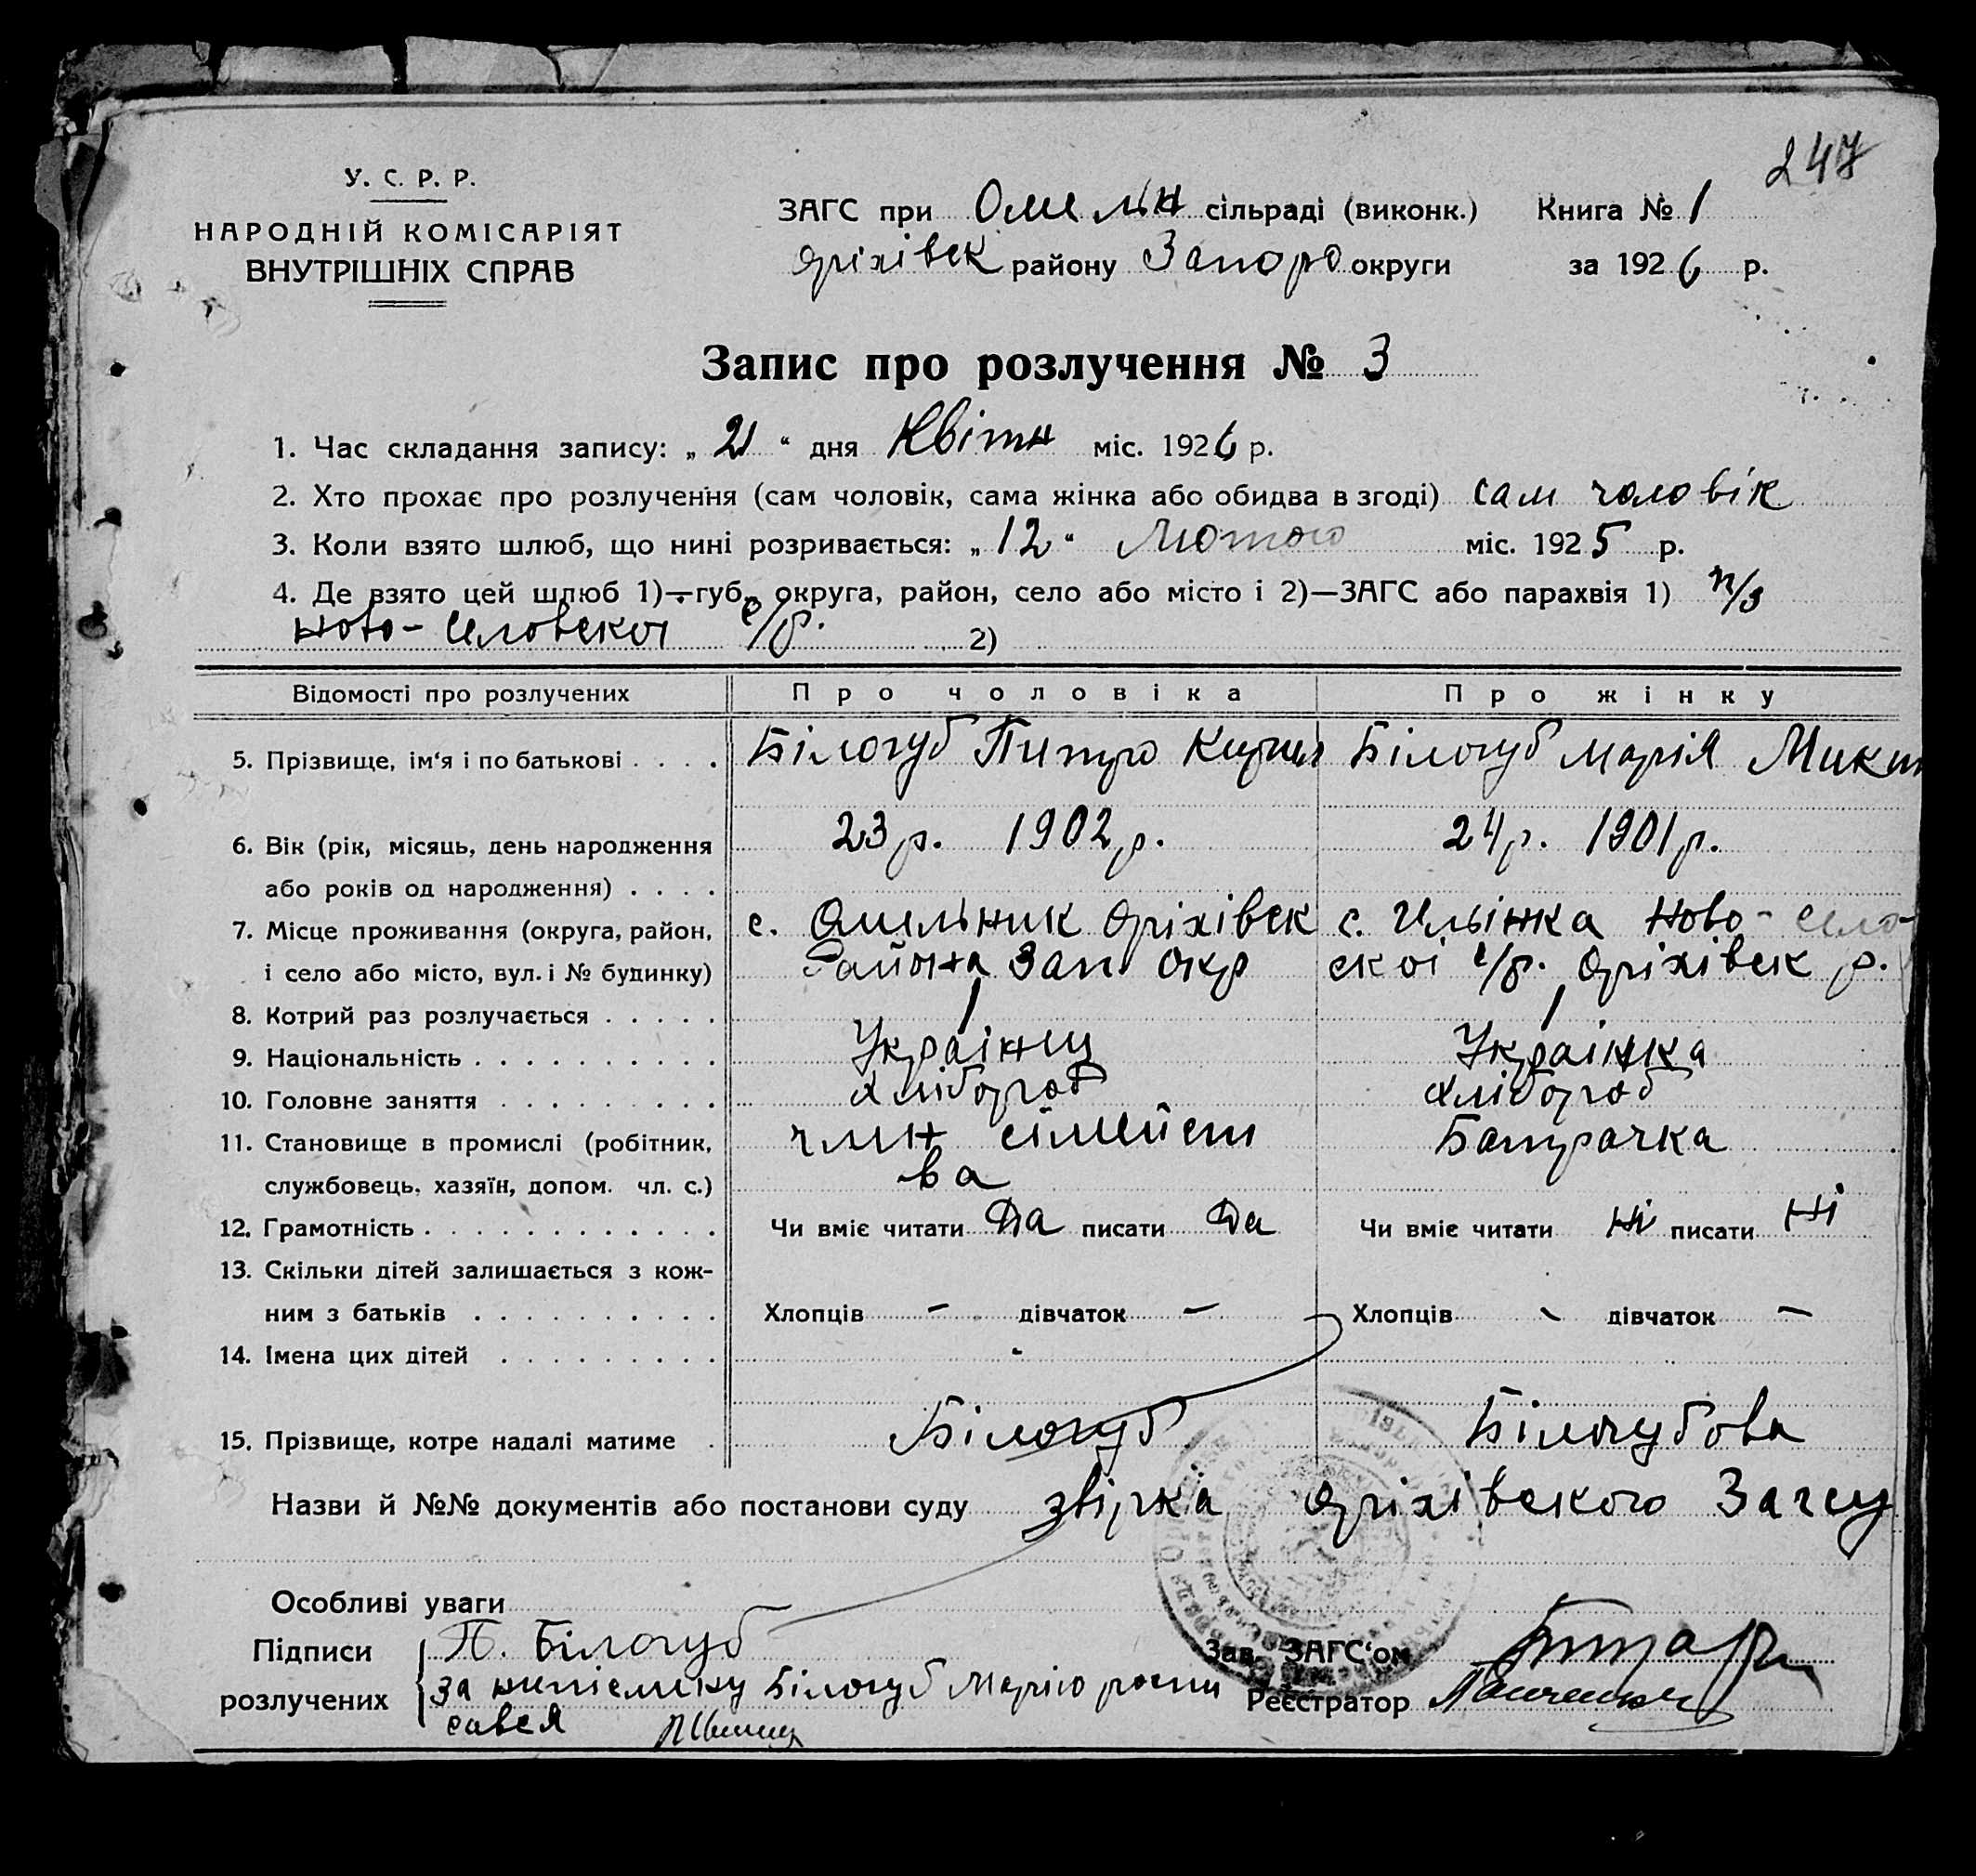 247
У. С. Р. Р.
НАРОДНІЙ КОМІСАРІЯТ
ВНУТРІШНІХ СПРАВ
ЗАГС при Омельн сільраді (виконк.) Книга № 1
Оріхівск району Запоро округи за 1926 р.
Запис про розлучення № 3
1. Час складання запису: „ 21 “ дня Квітн міс. 1926 р.
2. Хто прохає про розлучення (сам чоловік, сама жінка або обидва в згоді) сам чоловік
3. Коли взято шлюб, що нині розривається: „ 12 “ Лютого міс. 1925 р.
4. Де взято цей шлюб 1)—губ., округа, район, село або місто і 2)—ЗАГС або парахвія 1) п/з
Ново-Селовскої с/р. 2)
Відомості про розлучених Про чоловіка Про жінку
5. Прізвище, ім‘я і по батькові . . . . Білогуб Питро Кирил Білогуб Марія Микит
6. Вік (рік, місяць, день народження 23 р. 1902 р. 24 р. 1901 р.
або років од народження) . . . .
7. Місце проживання (округа, район, с. Омельник Оріхівск с. Ильінка Ново-Село-
і село або місто, вул. і № будинку) Района Зап Окр скоі с/р. Оріхівск р.
8. Котрий раз розлучається . . . . . 1 1
9. Національність . . . . . . . . . . Украінец Украінка
10. Головне заняття . . . . . . . . . хлібороб хлібороб
11. Становище в промислі (робітник, член сімейст Батрачка
службовець, хазяїн, допом. чл. с.) ва
12. Грамотність . . . . . . . . . . . . Чи вміє читати Да писати Да Чи вміє читати Ні писати Ні
13. Скільки дітей залишається з кож-
ним з батьків . . . . . . . . . . Хлопців — дівчаток — Хлопців — дівчаток —
14. Імена цих дітей . . . . . . . . .
15. Прізвище, котре надалі матиме . Білогуб Білогубова
Назви й №№ документів або постанови суду звірка Оріхівского Загсу
Особливі уваги
Підписи П. Білогуб Зав. ЗАГС‘ом
розлучених за Білогуб Марію роспи Реєстратор
савея